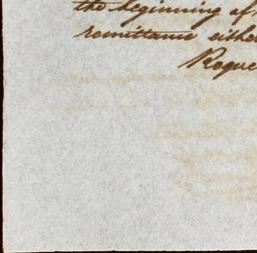 the beginning of
remittance either
Reque